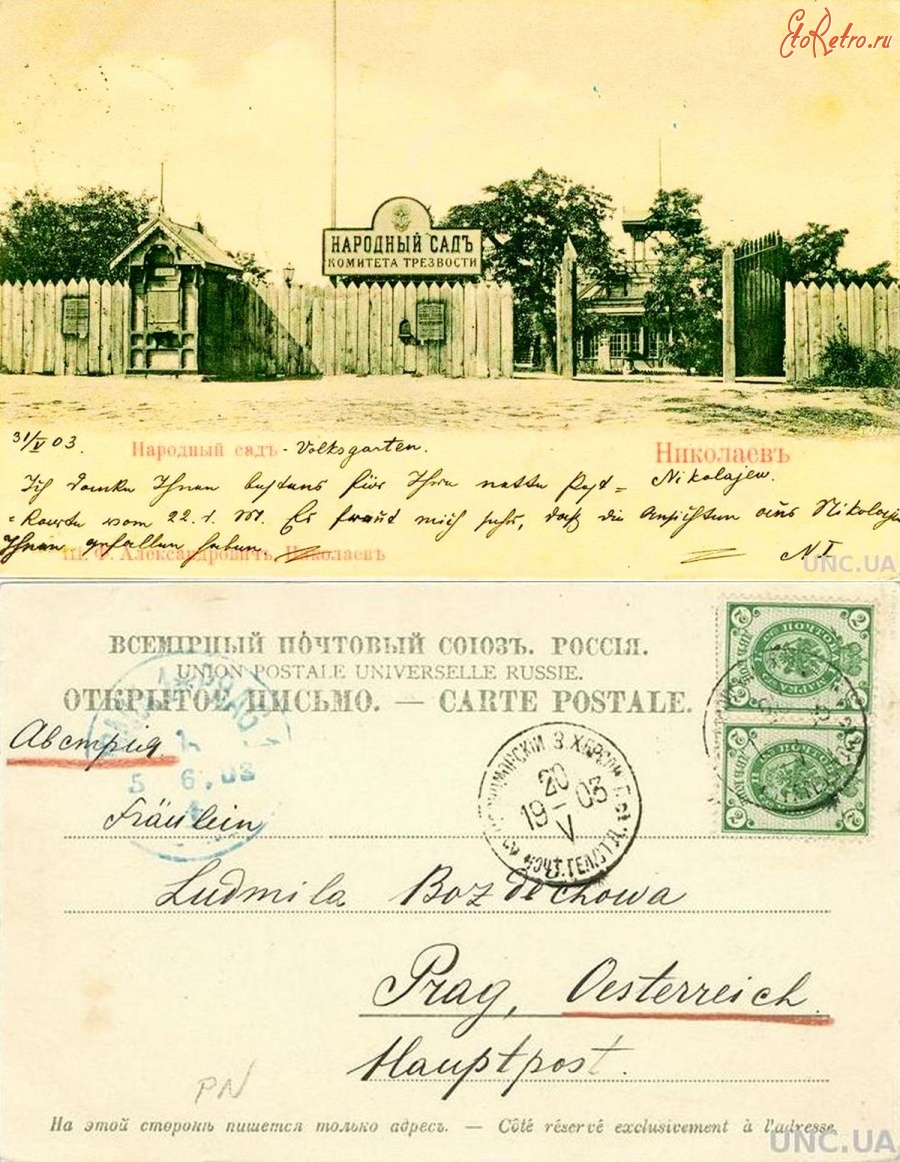 EtoRetro.ru
НАРОДНЫЙ САДЪ
КОМИТЕТА ТРЕЗВОСТИ
31/V 03. Народный садъ - Volksgarten. Николаевъ
Ich danke Ihnen bestens für Ihre nette Post= Nikolajew.
=karte vom 22. d. Mt. Es freut mich sehr, daß die Ansichten aus Nikolajew
Ihnen gefallen haben.
Ш. Ф. Александровичъ, Николаевъ
UNC.UA
ВСЕМІРНЫЙ ПОЧТОВЫЙ СОЮЗЪ. РОССІЯ.
UNION POSTALE UNIVERSELLE RUSSIE.
ОТКРЫТОЕ ПИСЬМО. — CARTE POSTALE.
Австрія
5 6.03
20
1903
V
2 2
2 2
Fräulein
Ludmila Bozděchowa
Prag, Oesterreich.
Hauptpost.
PN
На этой сторонѣ пишется только адресъ. — Côté réservé exclusivement à l'adresse.
UNC.UA